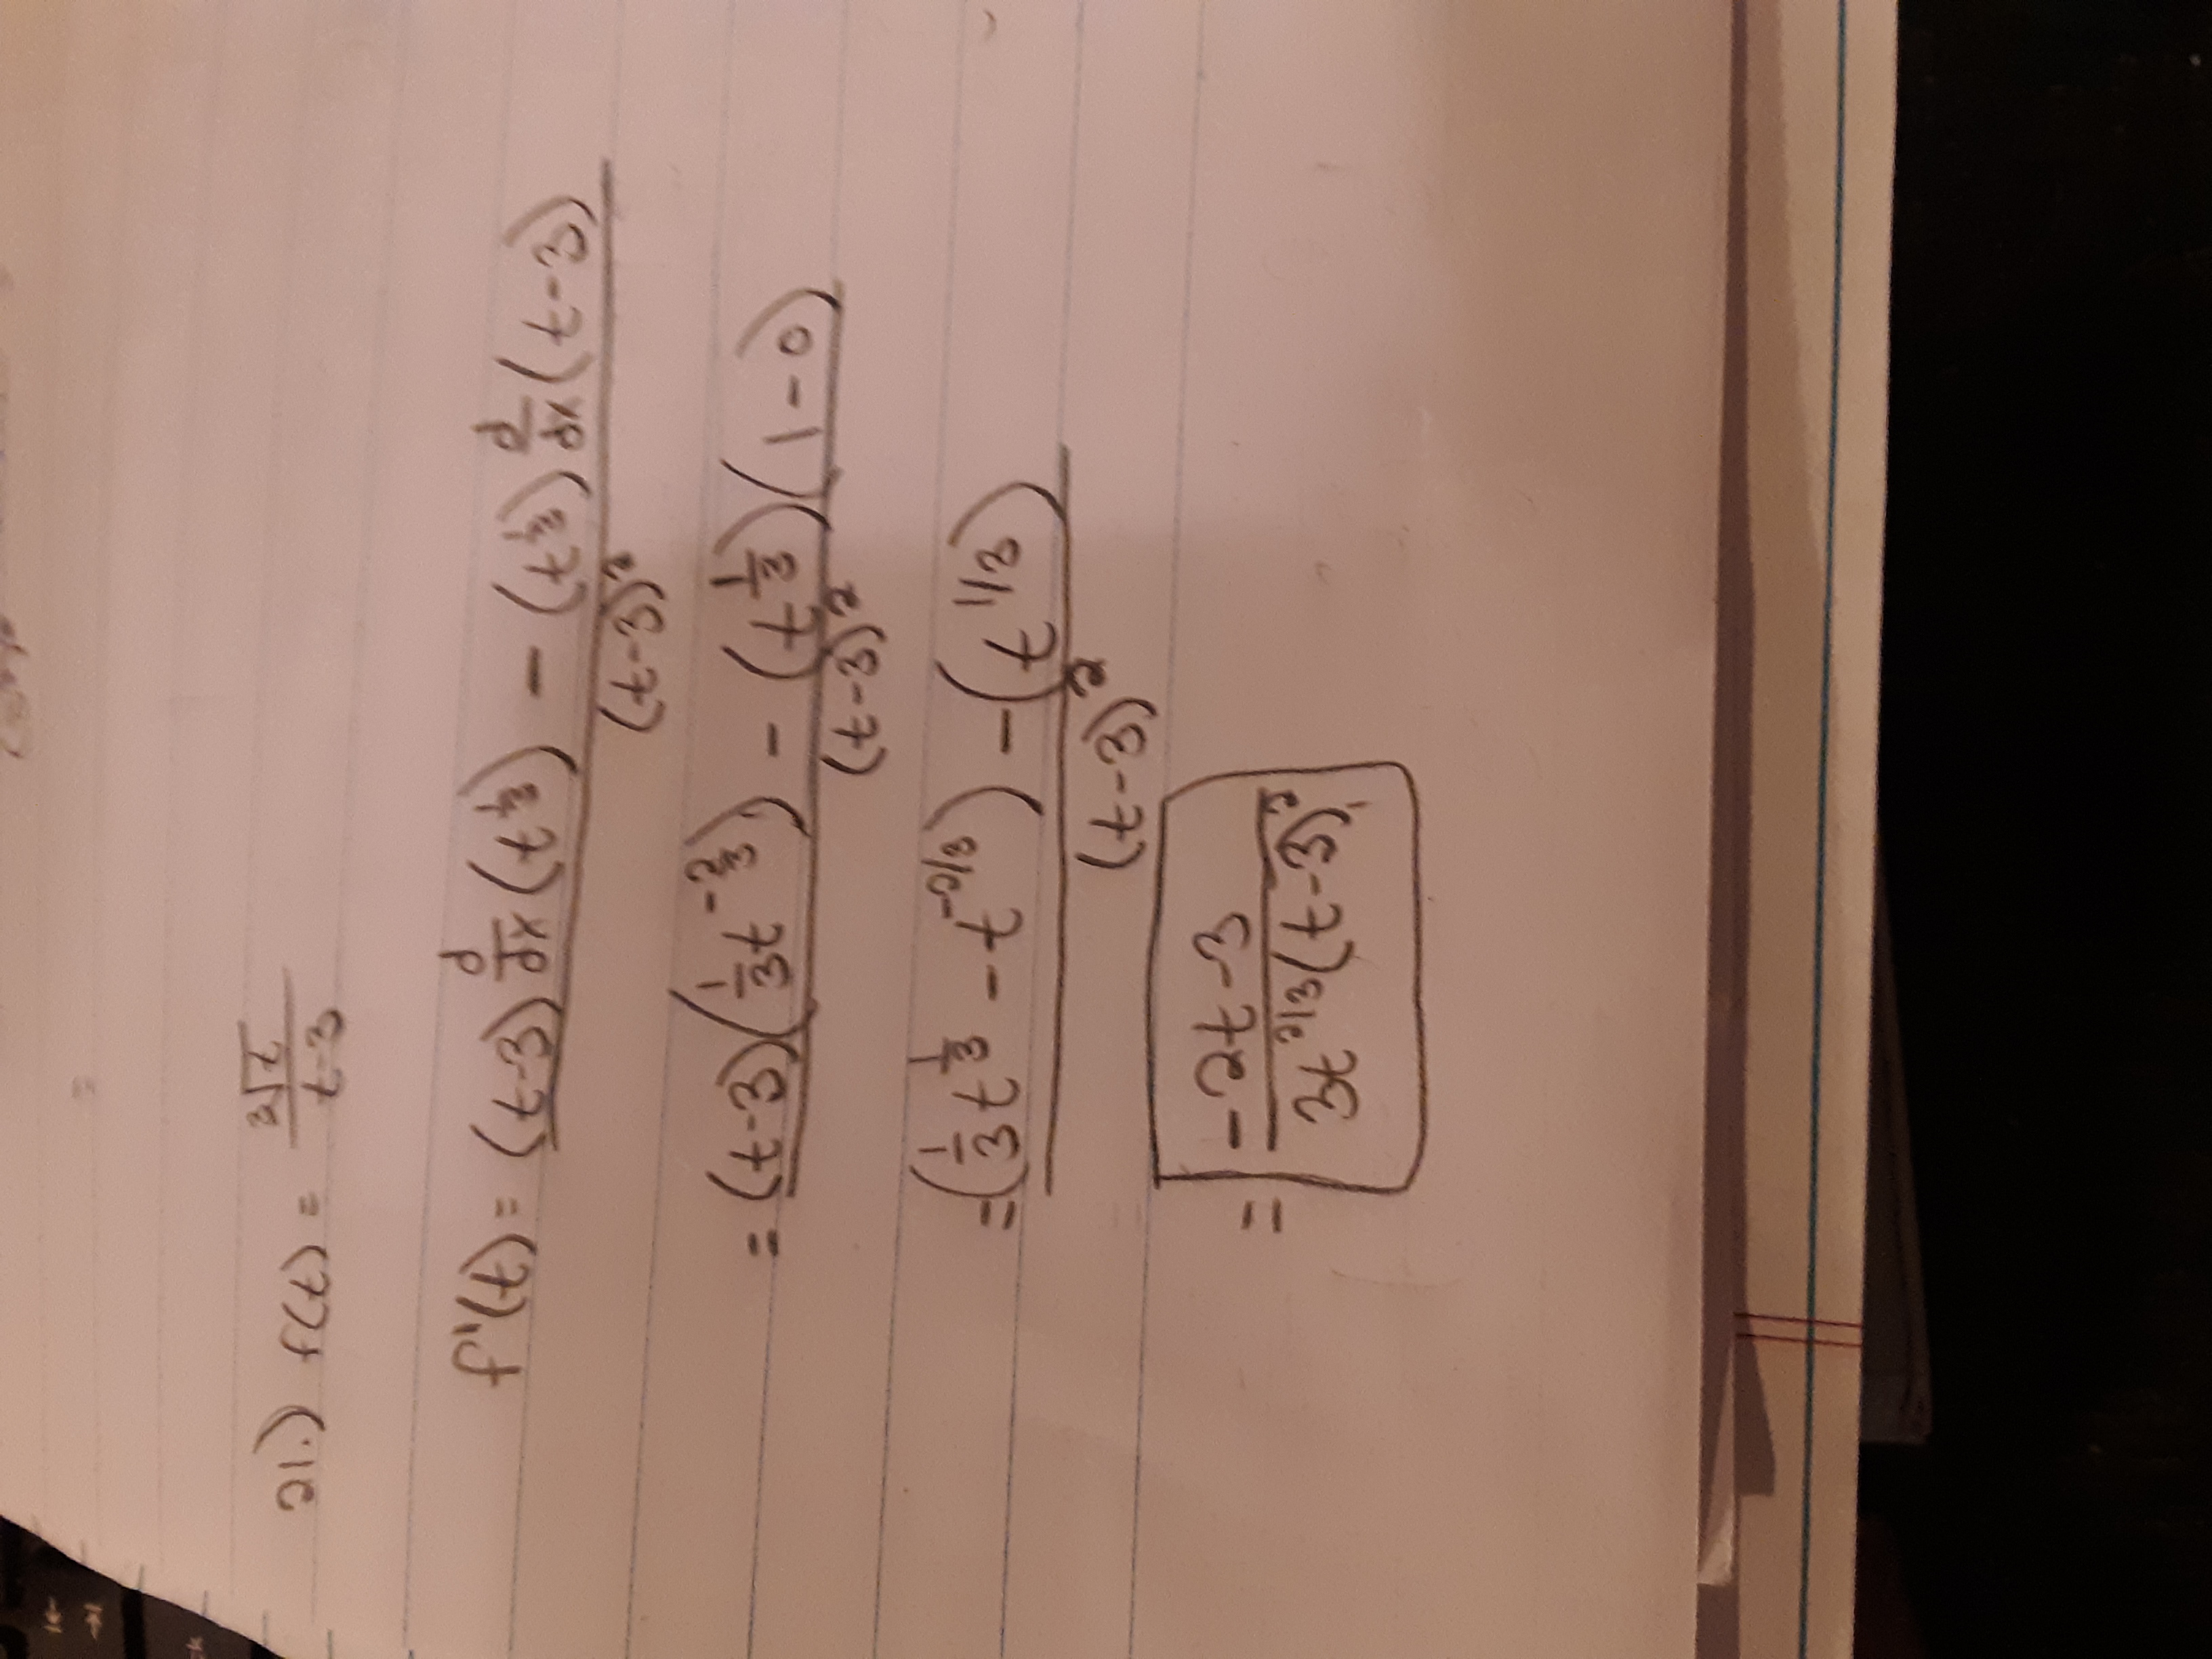 21.) f(t) = ∛t / (t-3)
f'(t) = [(t-3) d/dx (t^(1/3)) - (t^(1/3)) d/dx (t-3)] / (t-3)²
= [(t-3)(1/3 t^(-2/3)) - (t^(1/3))(1-0)] / (t-3)²
= [(1/3 t^(1/3) - t^(-2/3)) - (t^(1/3))] / (t-3)²
= (-2t-3) / (3t^(2/3)(t-3)²)